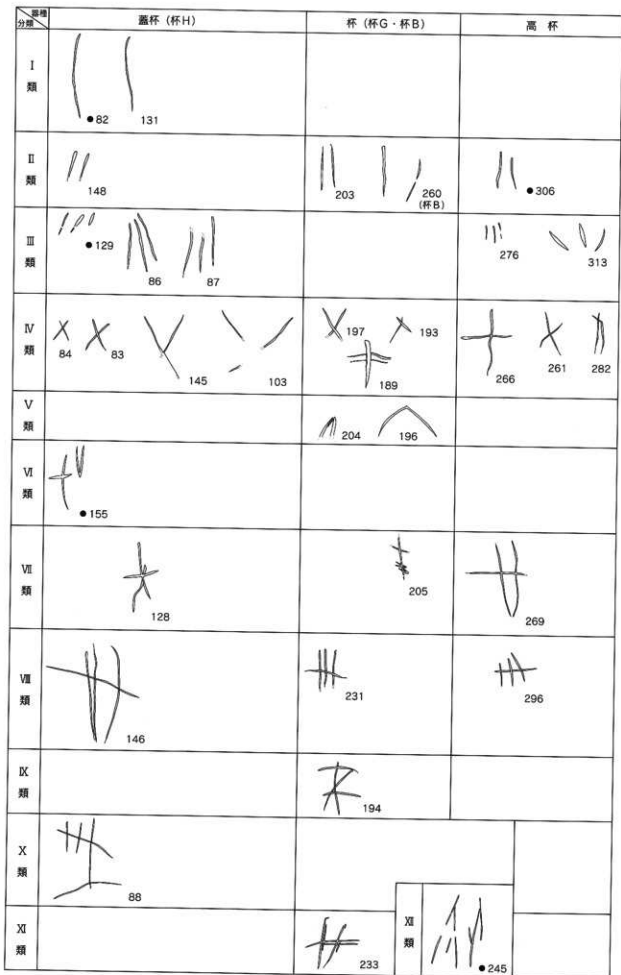 器種
分類
蓋杯 (杯H)
杯 (杯G・杯B)
高 杯
I
類
●82 131
II
類
148
203 260
(杯B)
●306
III
類
●129 86 87
276 313
IV
類
84 83 145 103
197 193
189
266 261 282
V
類
204 196
VI
類
●155
VII
類
128
205
269
VIII
類
146
231
296
IX
類
194
X
類
88
XI
類
233
XII
類
●245